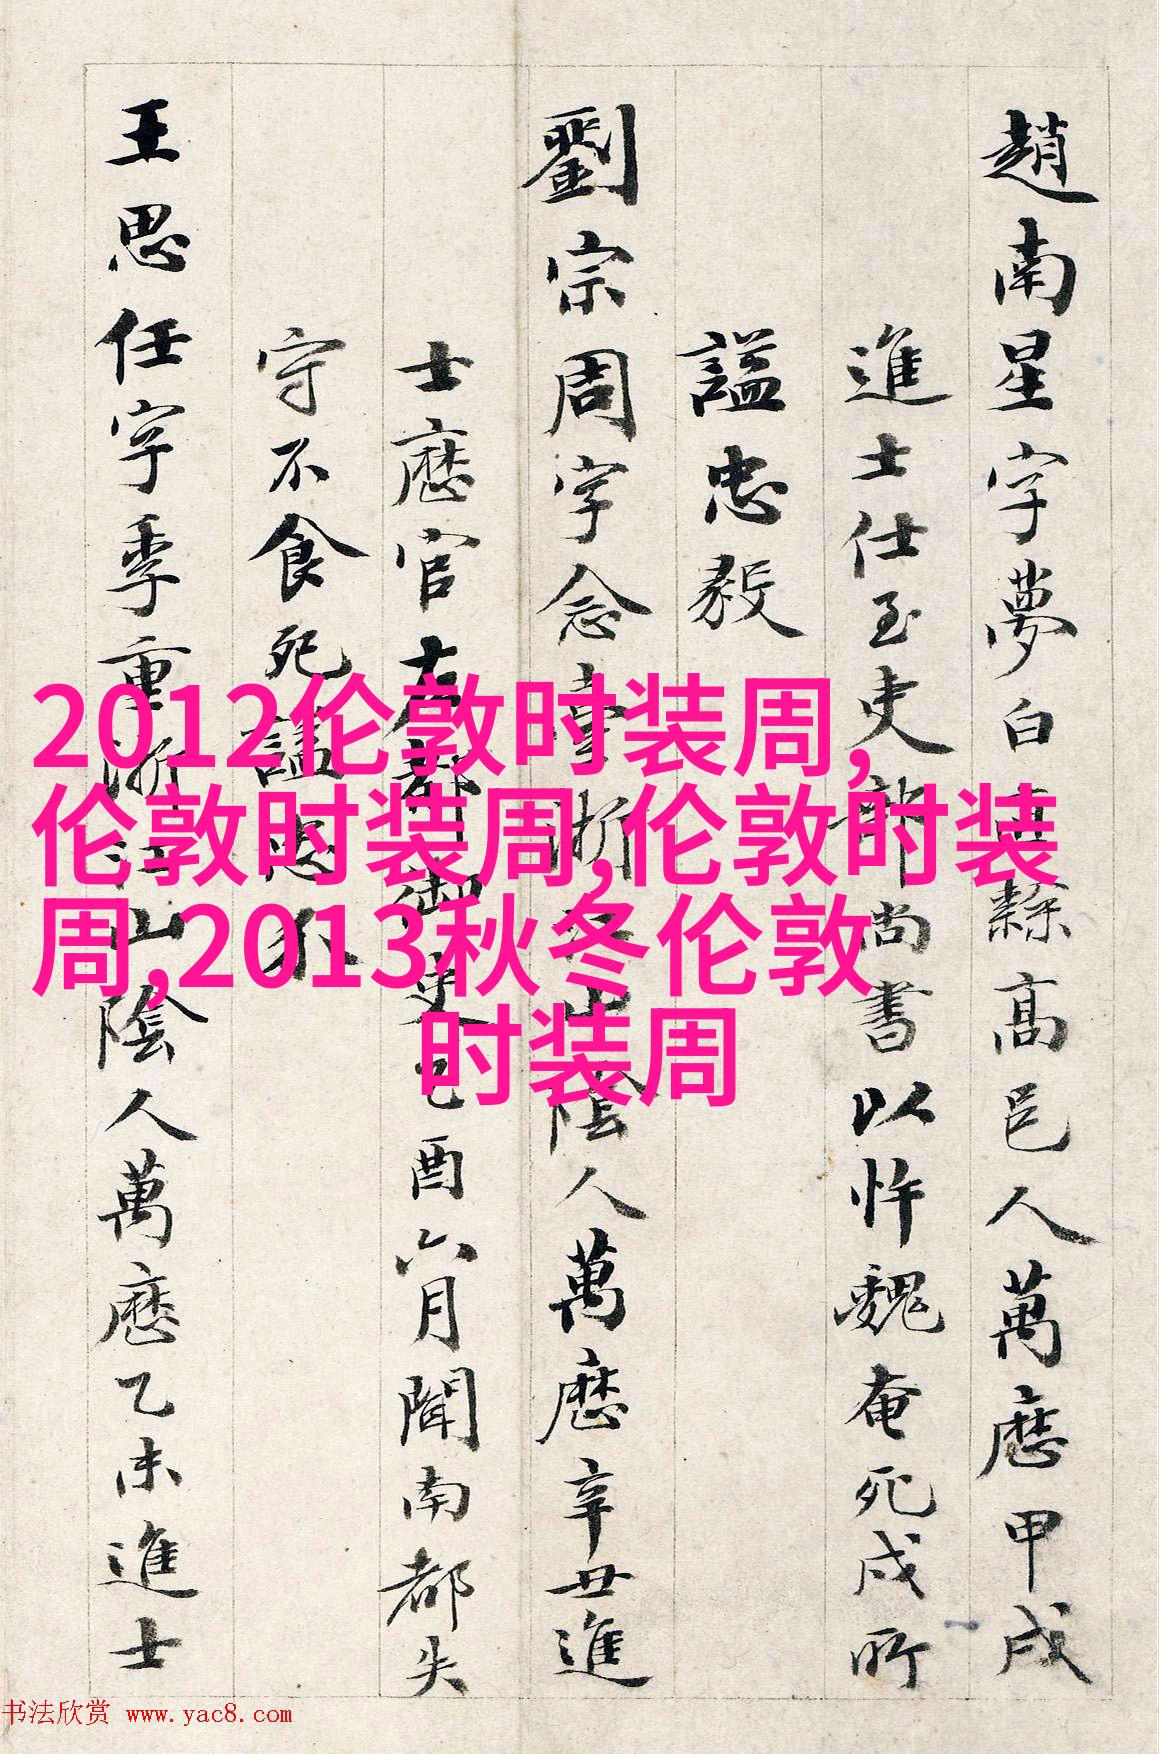 趙南星字夢白直隸高邑人萬曆甲戌
進士仕至吏部尚書以忤魏奄死戍所
諡忠毅
劉宗周字念臺浙江山陰人萬曆辛丑進
士歷官左都御史乙酉六月聞南都失
守不食死諡忠
王思任字季重浙江山陰人萬曆乙未進士
2012伦敦时装周,
伦敦时装周,伦敦时装
周,2013秋冬伦敦
时装周
书法欣赏 www.yac8.com